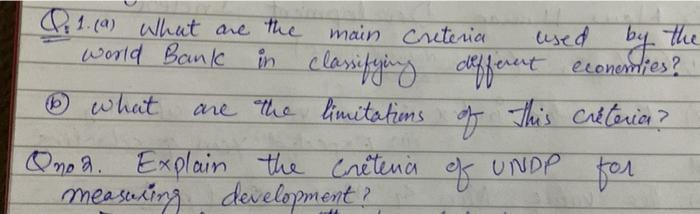 Q.1.(a) What are the main criteria used by the
world Bank in classifying different economies?
(b) what are the limitations of This criteria?
Qno2. Explain the criteria of UNDP for
measuring development?